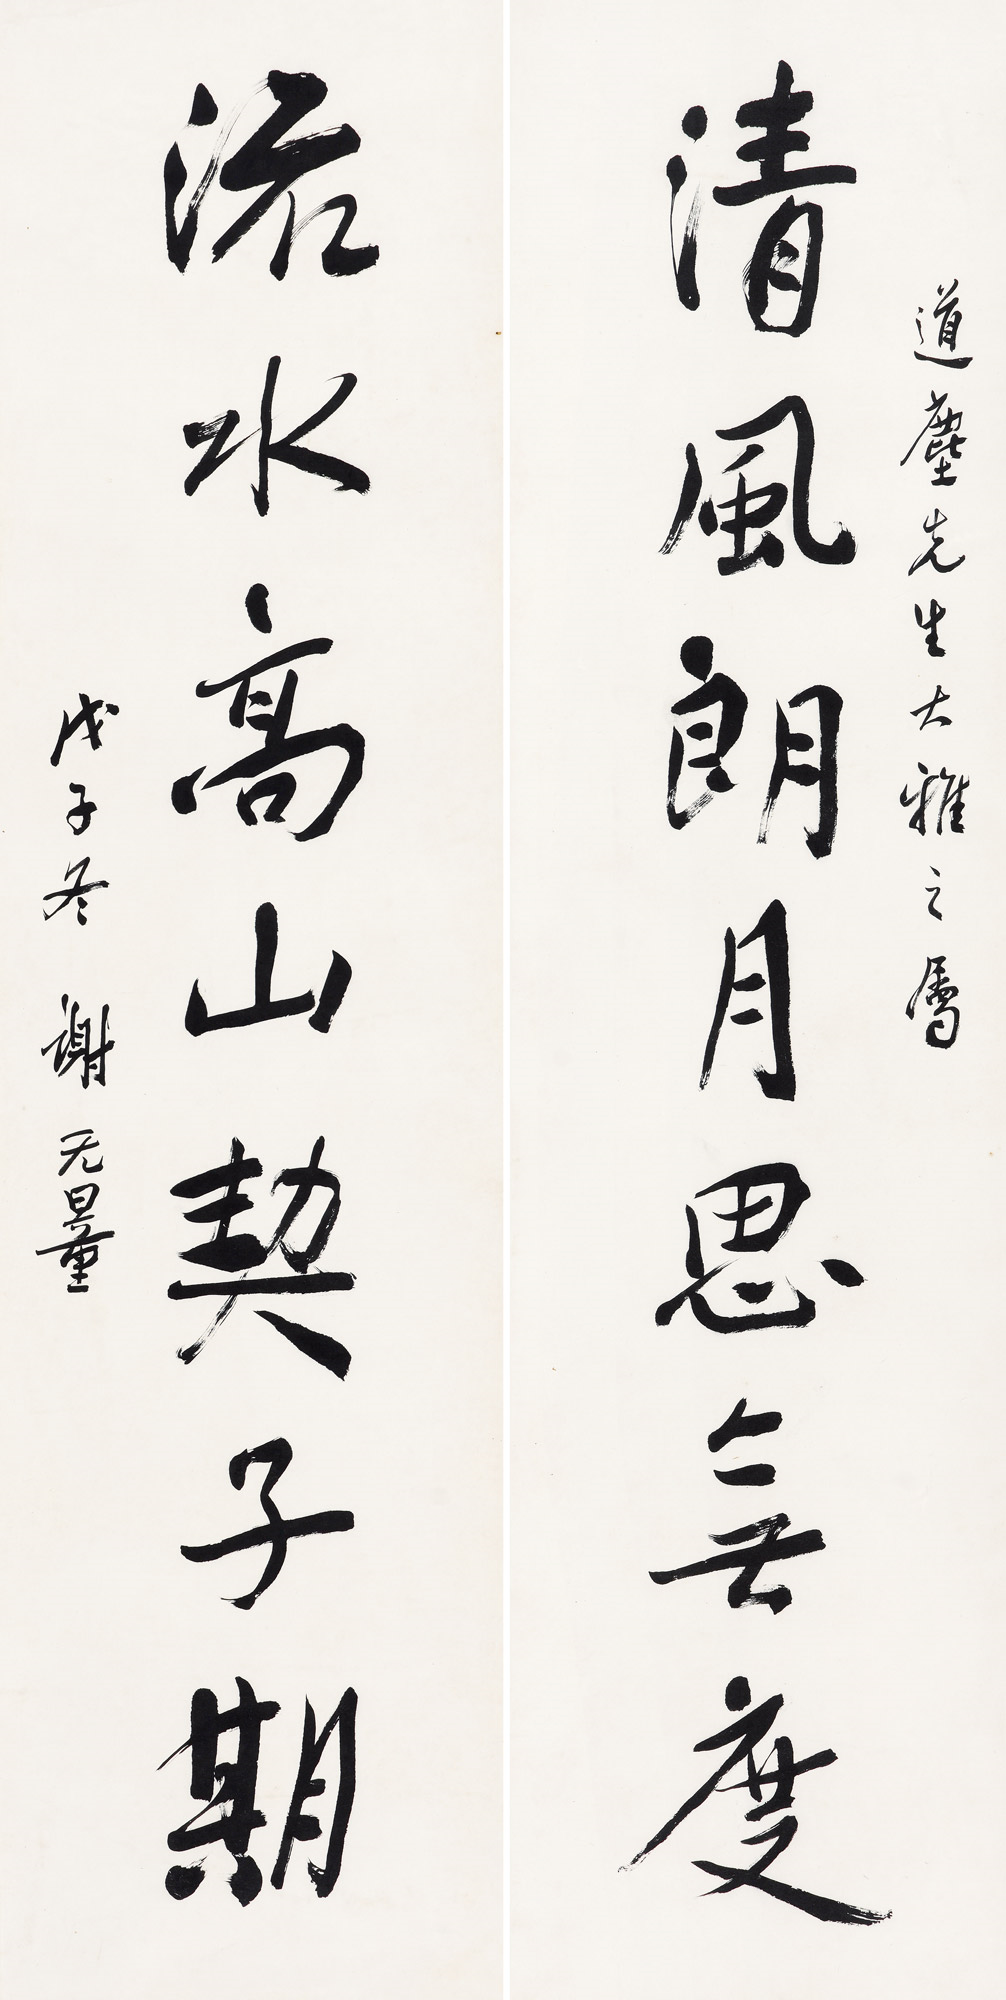 道塵先生大雅之属
清風朗月思無度
流水高山契子期
戊子冬 謝无量